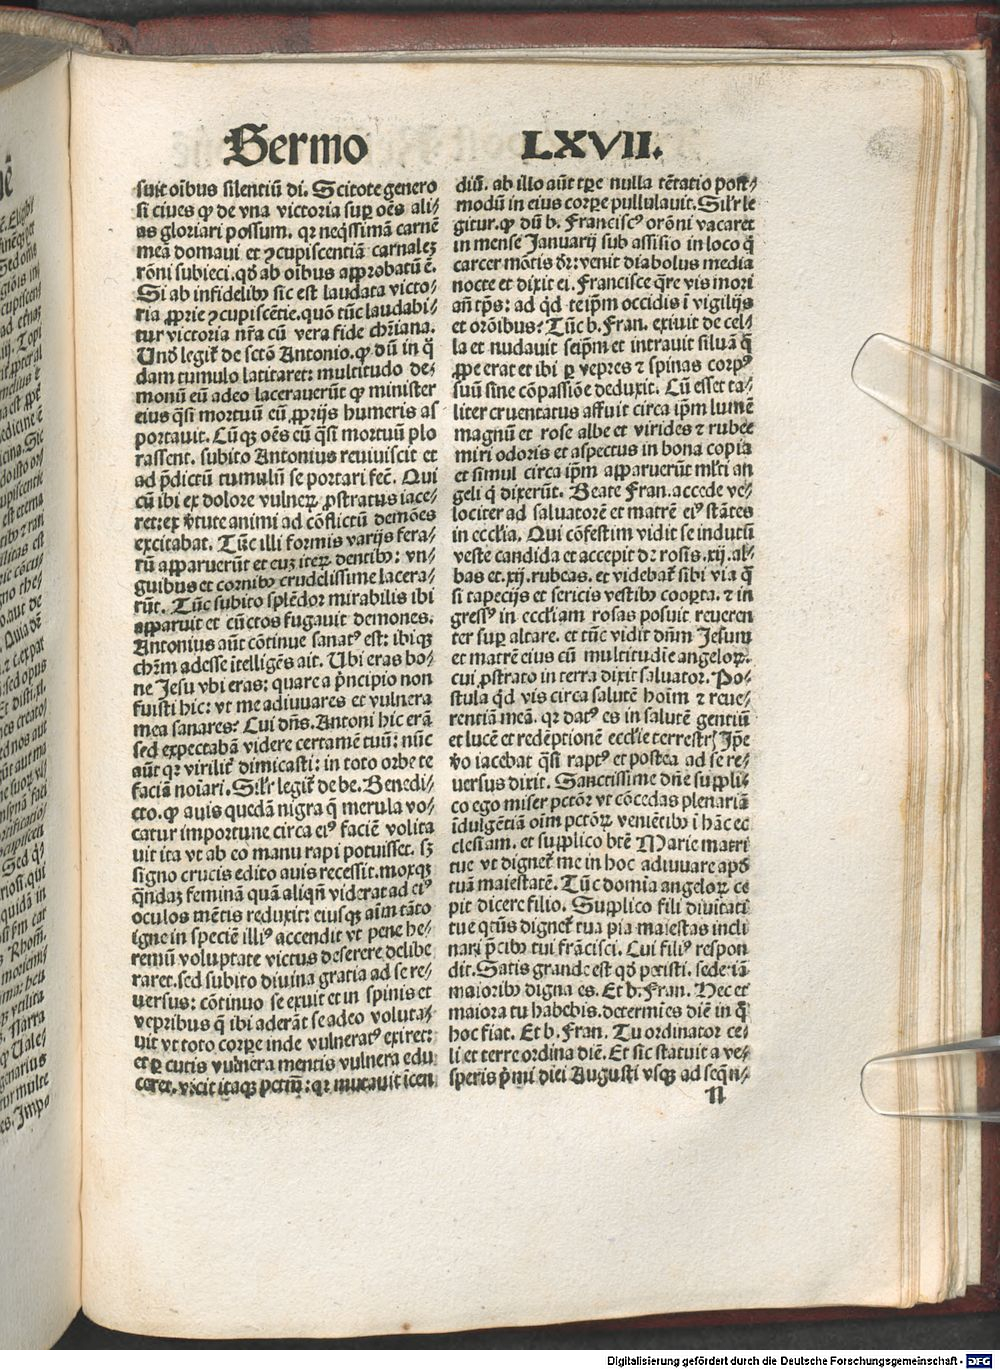 Sermo LXVII.
suit oībus silentiū di. Scitote genero
si ciues ꝙ de vna victoria suꝑ oēs ali⸗
as gloriari possum. qꝛ neq̄ssimā carnē
meā domaui et ꝯcupiscentiā carnaleꝫ
rōni subieci. qđ ab oibus approbatū ē.
Si ab infidelibꝰ sic est laudata victo⸗
ria ꝓprie ꝯcupiscētie. quō tūc laudabi⸗
tur victoria nr̄a cū vera fide chr̄iana.
Unđ legit̄ de sctō Antonio. ꝙ dū in q̄
dam tumulo latitaret: multitudo de⸗
monū eū adeo lacerauerūt ꝙ minister
eius q̄si mortuū eū ꝓprijs humeris as
portauit. Cūqꝫ oēs eū q̄si mortuū plo
rassent. subito Antonius reuiuiscit et
ad p̄dictū tumulū se portari fec̄. Qui
cū ibi ex dolore vulneꝝ ꝓstratus iace⸗
ret: ex v̄tute animi ad cōflictū demōes
excitabat. Tūc illi formis varijs fera⸗
rū apparuerūt et euꝫ iteꝝ dentibꝰ: vn⸗
guibus et cornibꝰ crudelissime lacera⸗
rūt. Tūc subito splēdor mirabilis ibi
apparuit et cūctos fugauit demones.
Antonius aūt cōtinue sanatꝰ est: ibiqꝫ
chr̄m adesse ītelligēs ait. Ubi eras bo⸗
ne Jesu vbi eras: quare a p̄ncipio non
fuisti hic: vt me adiuuares et vulnera
mea sanares? Cui dn̄s. Antoni hic erā
sed expectabā videre certamē tuū: nūc
aūt qꝛ virilit̄ dimicasti: in toto orbe te
faciā noīari. Sil'r legit̄ de be. Benedi⸗
cto. ꝙ auis quedā nigra q̄ merula vo⸗
catur importune circa eiꝰ faciē volita
uit ita vt ab eo manu rapi potuisset. sꝫ
signo crucis edito auis recessit. moxqꝫ
q̄ndaꝫ feminā quā aliqn̄ viderat ad eiꝰ
oculos mētis reduxit: eiusqꝫ aīm tāto
igne in speciē illiꝰ accendit vt pene he⸗
remū voluptate victus deserere delibe
raret. sed subito diuina gratia ad se re⸗
uersus: cōtinuo se exuit et in spinis et
vepribus q̄ ibi aderāt se adeo voluta⸗
uit vt toto corꝑe inde vulneratꝰ exiret:
et ꝑ cutis vulnera mentis vulnera edu
ceret. vicit itaqꝫ pctm̄: qꝛ mutauit īcen
diū. ab illo aūt tꝑe nulla tētatio post⸗
modū in eius corꝑe pullulauit. Sil'r le
gitur. ꝙ dū b. Franciscꝰ orōni vacaret
in mense Januarij sub assisio in loco q̄
carcer mōtis dr̄: venit diabolus media
nocte et dixit ei. Francisce q̄re vis mori
an̄ tp̄s: ad qd̄ teip̄m occidis ī vigilijs
et orōnibus? Tūc b. Fran. exiuit de cel⸗
la et nudauit seip̄m et intrauit siluā q̄
ꝓpe erat et ibi ꝑ vepres ⁊ spinas corpꝰ
suū sine cōpassiōe deduxit. Cū esset ta⸗
liter cruentatus affuit circa ip̄m lumē
magnū et rose albe et virides ⁊ rubee
miri odoris et aspectus in bona copia
et simul circa ip̄m apparuerūt ml'ti an
geli q̄ dixerūt. Beate Fran. accede ve⸗
lociter ad saluatorē et matrē eiꝰ stātes
in eccl'ia. Qui cōfestim vidit se indutū
veste candida et accepit dꝛ rosis. xij. al⸗
bas et. xij. rubeas. et videbat̄ sibi via q̄
si tapecijs et sericis vestibꝰ cooꝑta. ⁊ in
gressꝰ in eccl'iam rosas posuit reueren
ter suꝑ altare. et tūc vidit dn̄m Jesum
et matrē eius cū multitudīe angeloꝝ.
cui ꝓstrato in terra dixit saluator. Po⸗
stula qd̄ vis circa salutē hoīm ⁊ reue⸗
rentiā meā. qꝛ datꝰ es in salutē gentiū
et lucē et redēptionē eccl'ie terrestrꝭ Ip̄e
v̄o iacebat q̄si raptꝰ et postea ad se re⸗
uersus dixit. Sanctissime dn̄e suppli⸗
co ego miser pctōr vt cōcedas plenariā
īdulgētiā oīm pctōꝝ veniētibꝰ ī hāc ec
clesiam. et supplico btē Marie matri
tue vt dignet̄ me in hoc adiuuare apđ
tuā maiestatē. Tūc domīa angeloꝝ ce
pit dicere filio. Supplico fili diuītati
tue qtūs dignet̄ tua pia maiestas incli
nari p̄cibꝰ tui frācisci. Cui filiꝰ respon
dit. Satis grande est qđ petisti. sede: iā
maioribꝰ digna es. Et b. Fran. Hec et
maiora tu habebis. determīes diē in q̄
hoc fiat. Et b. Fran. Tu ordinator ce⸗
li et terre ordina diē. Et sic statuit a ve⸗
speris p̄mi diei Augusti vsqꝫ ad seq̄n⸗
n
Digitalisierung gefördert durch die Deutsche Forschungsgemeinschaft - DFG